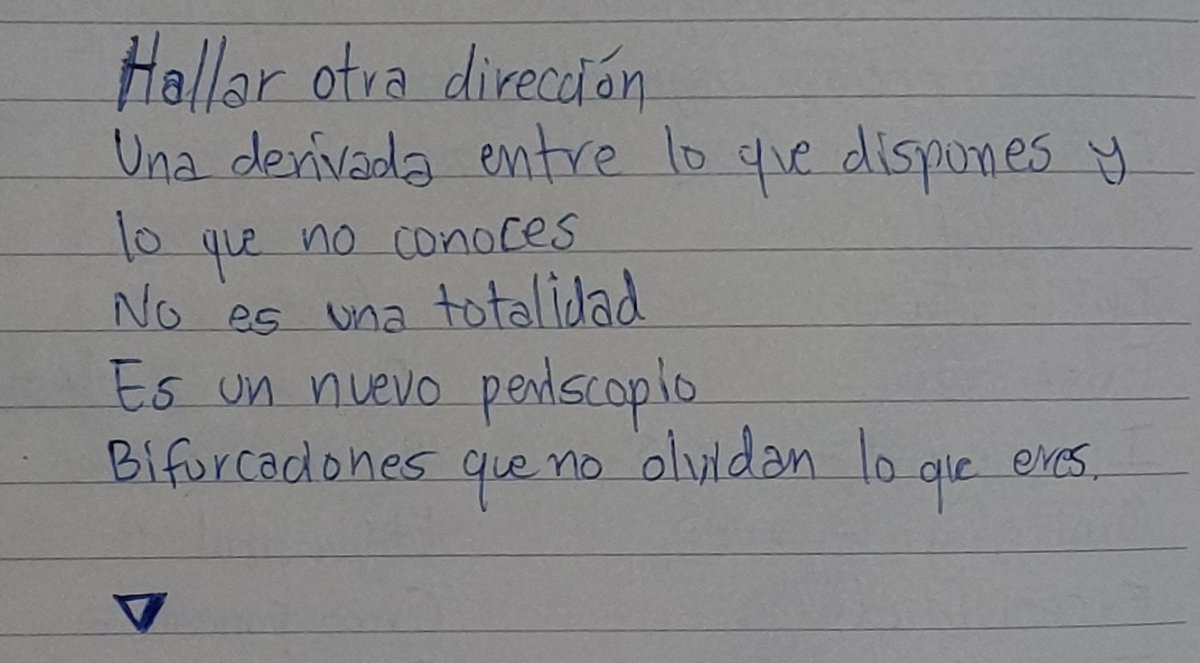 Hallar otra dirección
Una derivada entre lo que dispones y
lo que no conoces
No es una totalidad
Es un nuevo periscopio
Bifurcaciones que no olvidan lo que eres.